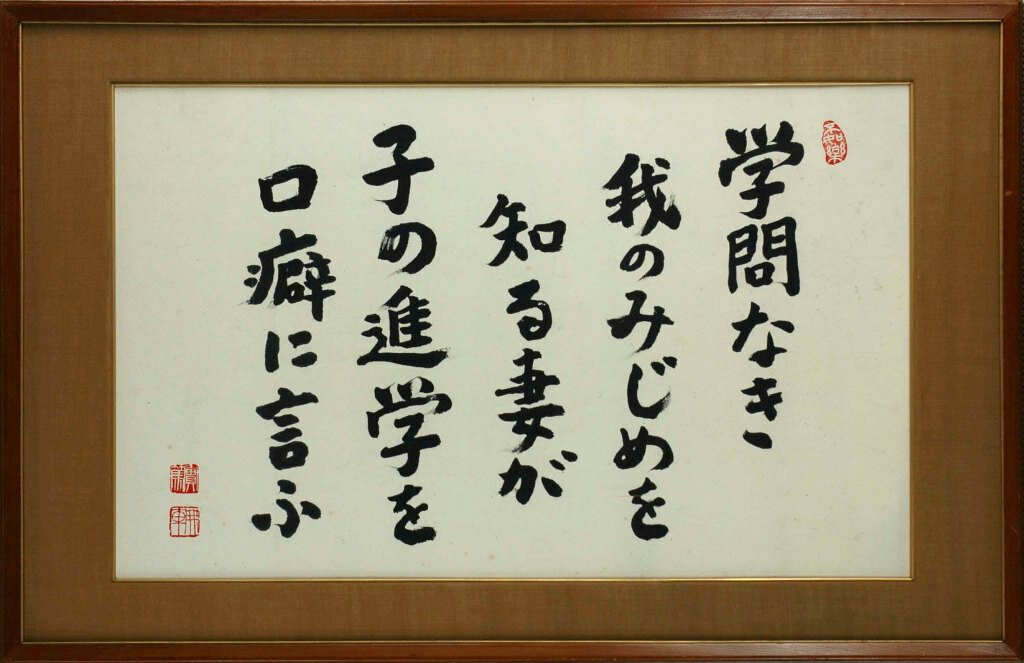 学問なき
我のみじめを
知る妻が
子の進学を
口癖に言ふ